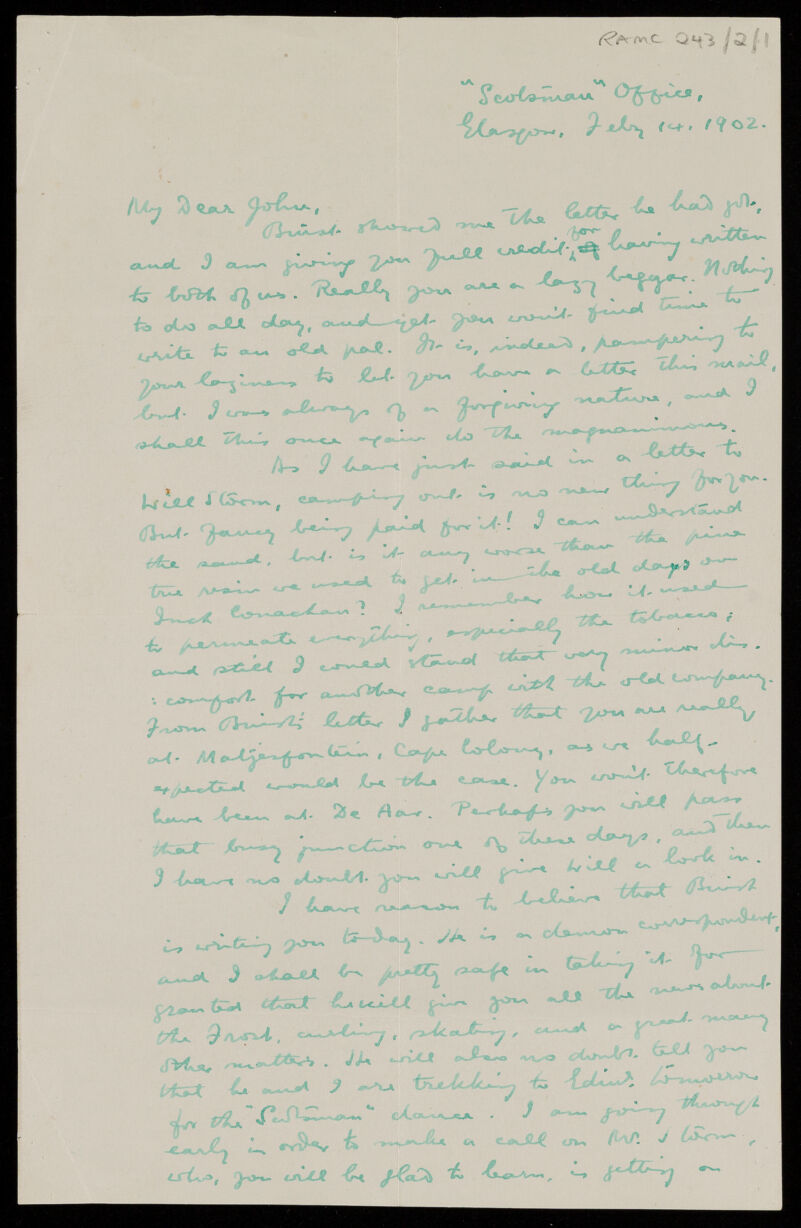 RAMC 243/2/1
"Scotsman" Office,
Glasgow, Feby 14, 1902.
My Dear John,
Buist showed me the letter he had got,
and I am giving you full credit for having written
to both of us. Really you are a lazy beggar. Nothing
to do all day, and yet you won't find time to
write to an old pal. It is, indeed, pampering to
your laziness to let you have a letter this mail,
but I was always of a forgiving nature, and I
shall this once again do the magnanimous.
As I have just said in a letter to
Will Storm, camping out is no new thing for you.
But fancy being paid for it! I can understand
the sand, but is it any worse than the pine
tree resin we used to get in the old days on
Inch Conachan? I remember how it used
to permeate everything, especially the tobacco;
and still I could stand that very minor dis-
:comfort for another camp with the old company.
From Buist's letter I gather that you are really
at Matjesfontein, Cape Colony, as we half-
expected would be the case. You won't therefore
have been at De Aar. Perhaps you will pass
that busy junction one of these days, and then
I have no doubt you will give Will a look in.
I have reason to believe that Buist
is writing you to-day. He is a demon correspondent,
and I shall be pretty safe in taking it for
granted that he will give you all the news about
the Frost, curling, skating, and a great many
other matters. He will also no doubt tell you
that he and I are trekking to Edinr. tomorrow
for the "Scotsman" dance. I am going through
early in order to make a call on Storm,
who, you will be glad to learn, is getting on